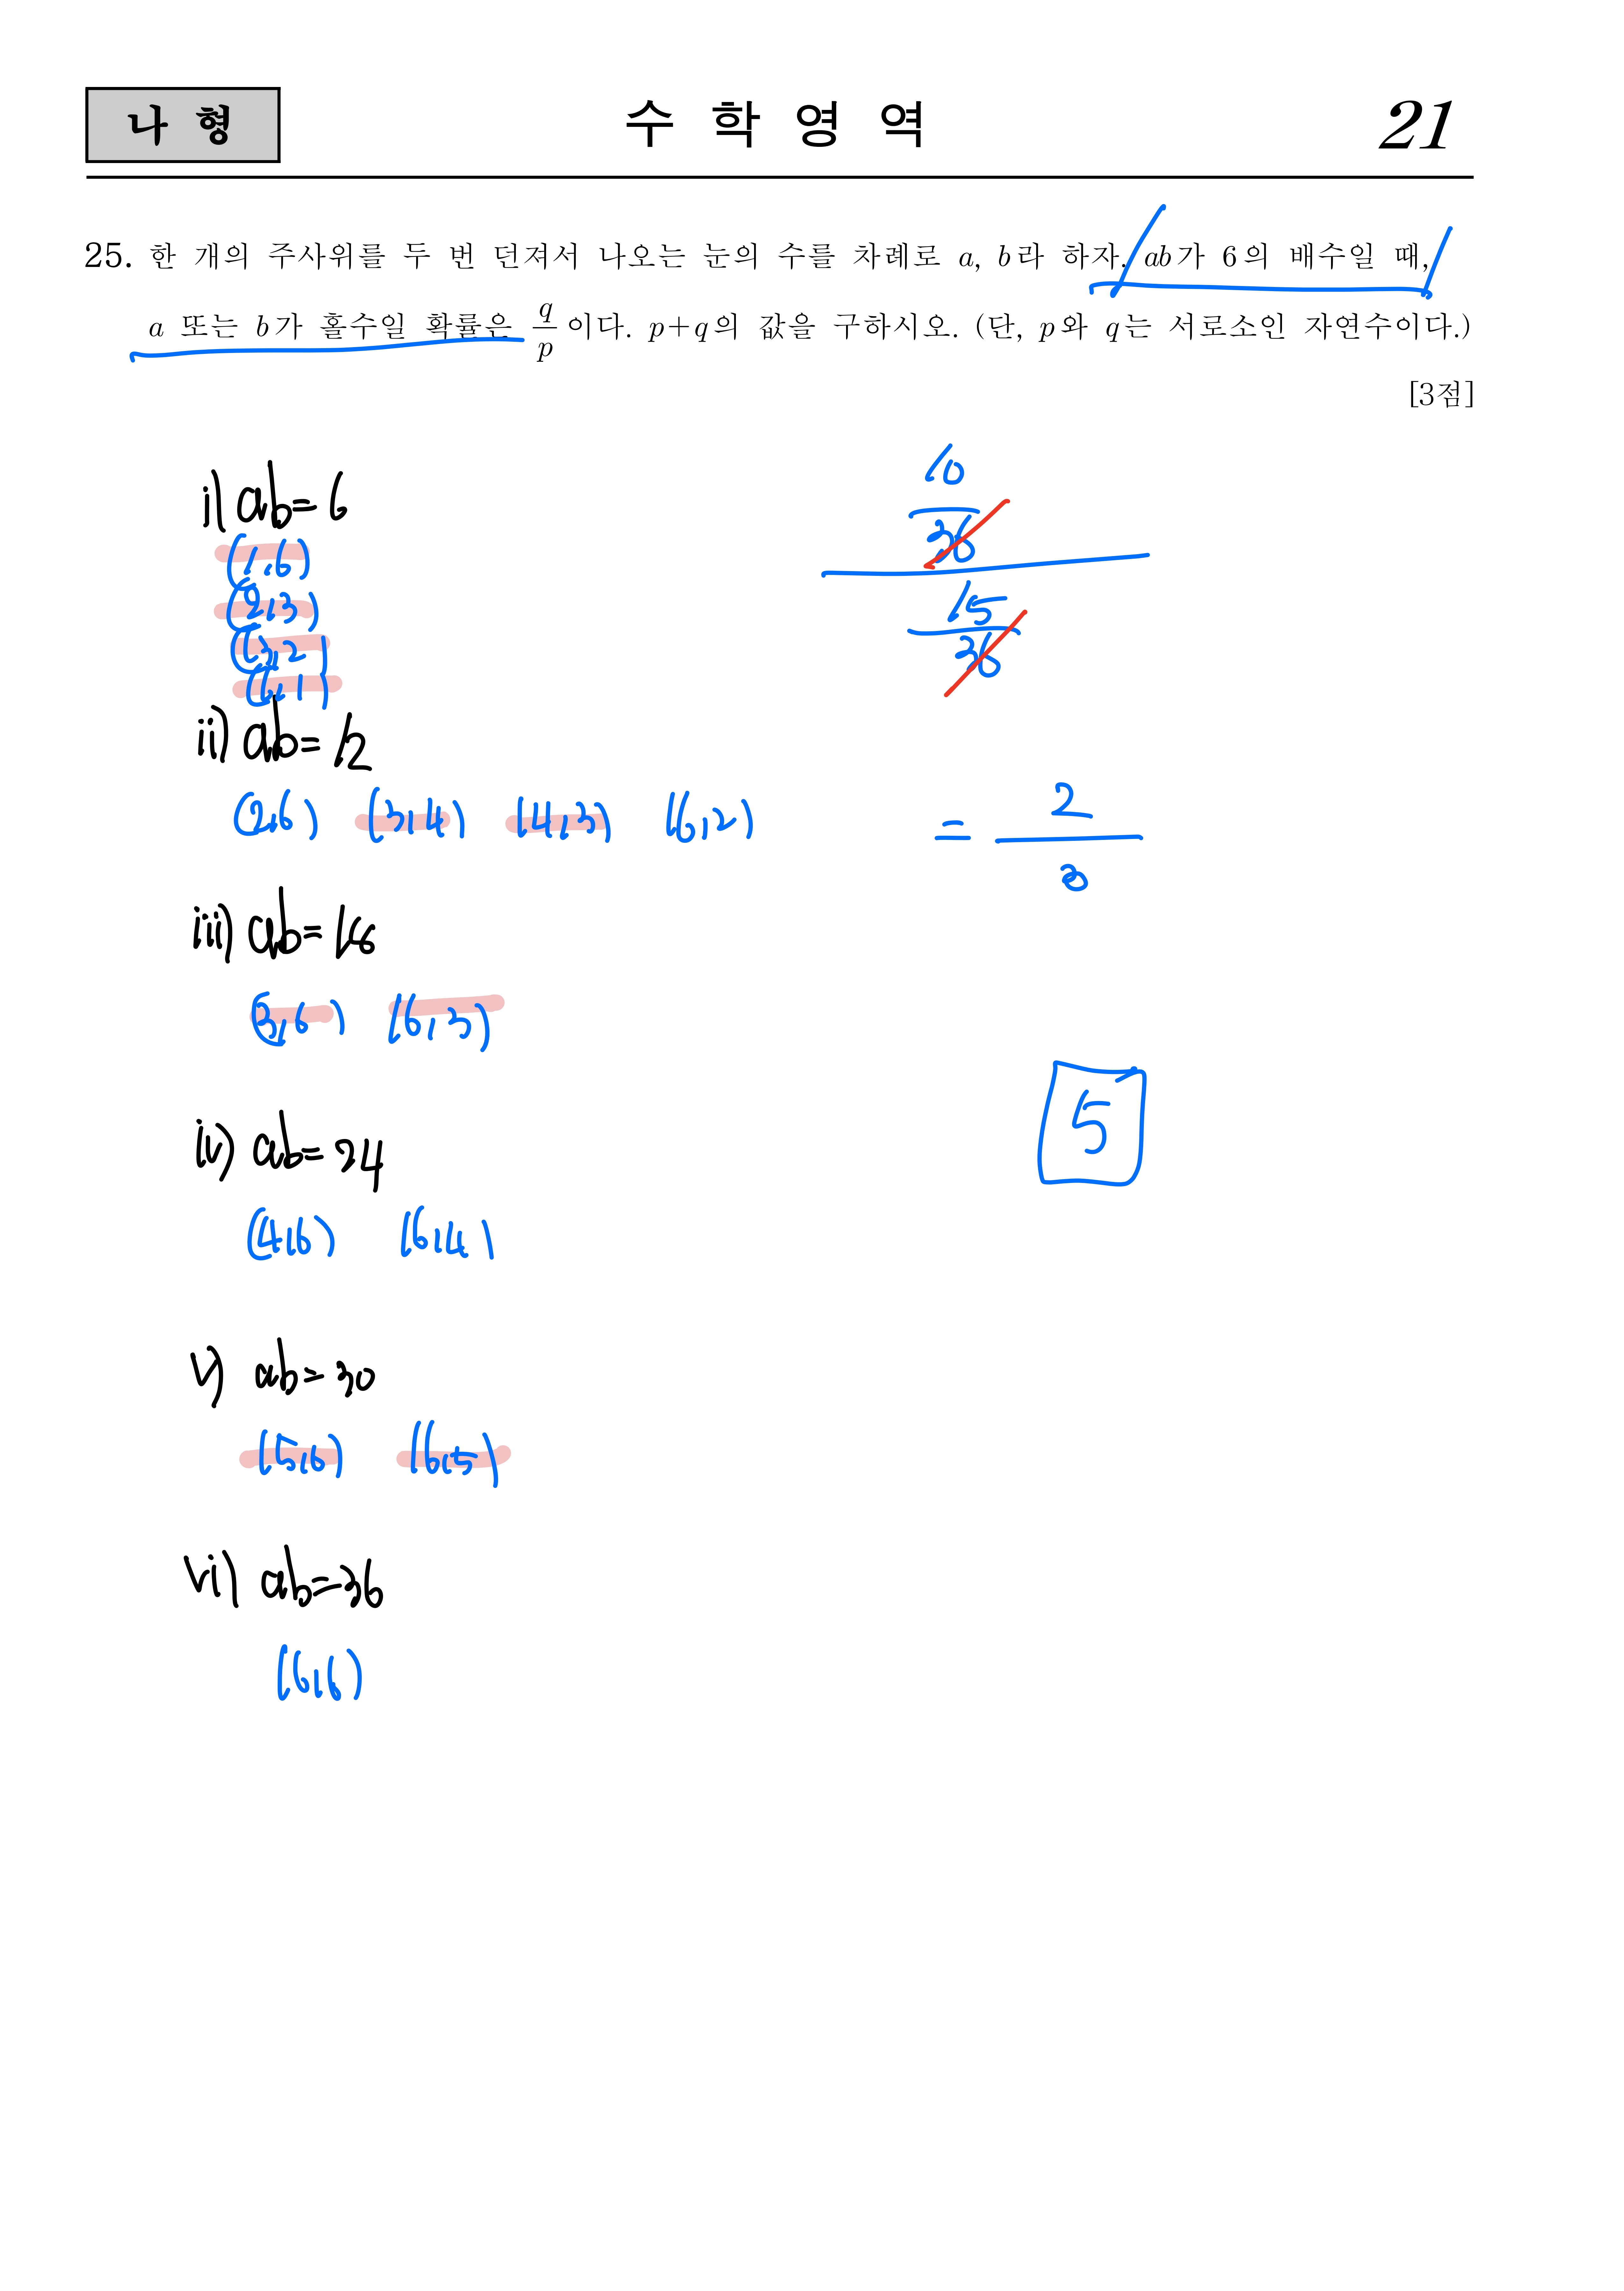 나 형
수 학 영 역
21
25. 한 개의 주사위를 두 번 던져서 나오는 눈의 수를 차례로 a, b라 하자. ab가 6의 배수일 때,
a 또는 b가 홀수일 확률은 q/p 이다. p+q의 값을 구하시오. (단, p와 q는 서로소인 자연수이다.)
[3점]
i) ab = 6
(1,6)
(2,3)
(3,2)
(6,1)
ii) ab = 12
(2,6) (3,4) (4,3) (6,2)
iii) ab =
(3,6) (6,3)
iv) ab = 24
(4,6) (6,4)
v) ab = 30
(5,6) (6,5)
vi) ab = 36
(6,6)
10
36
15
36
= 2
3
5